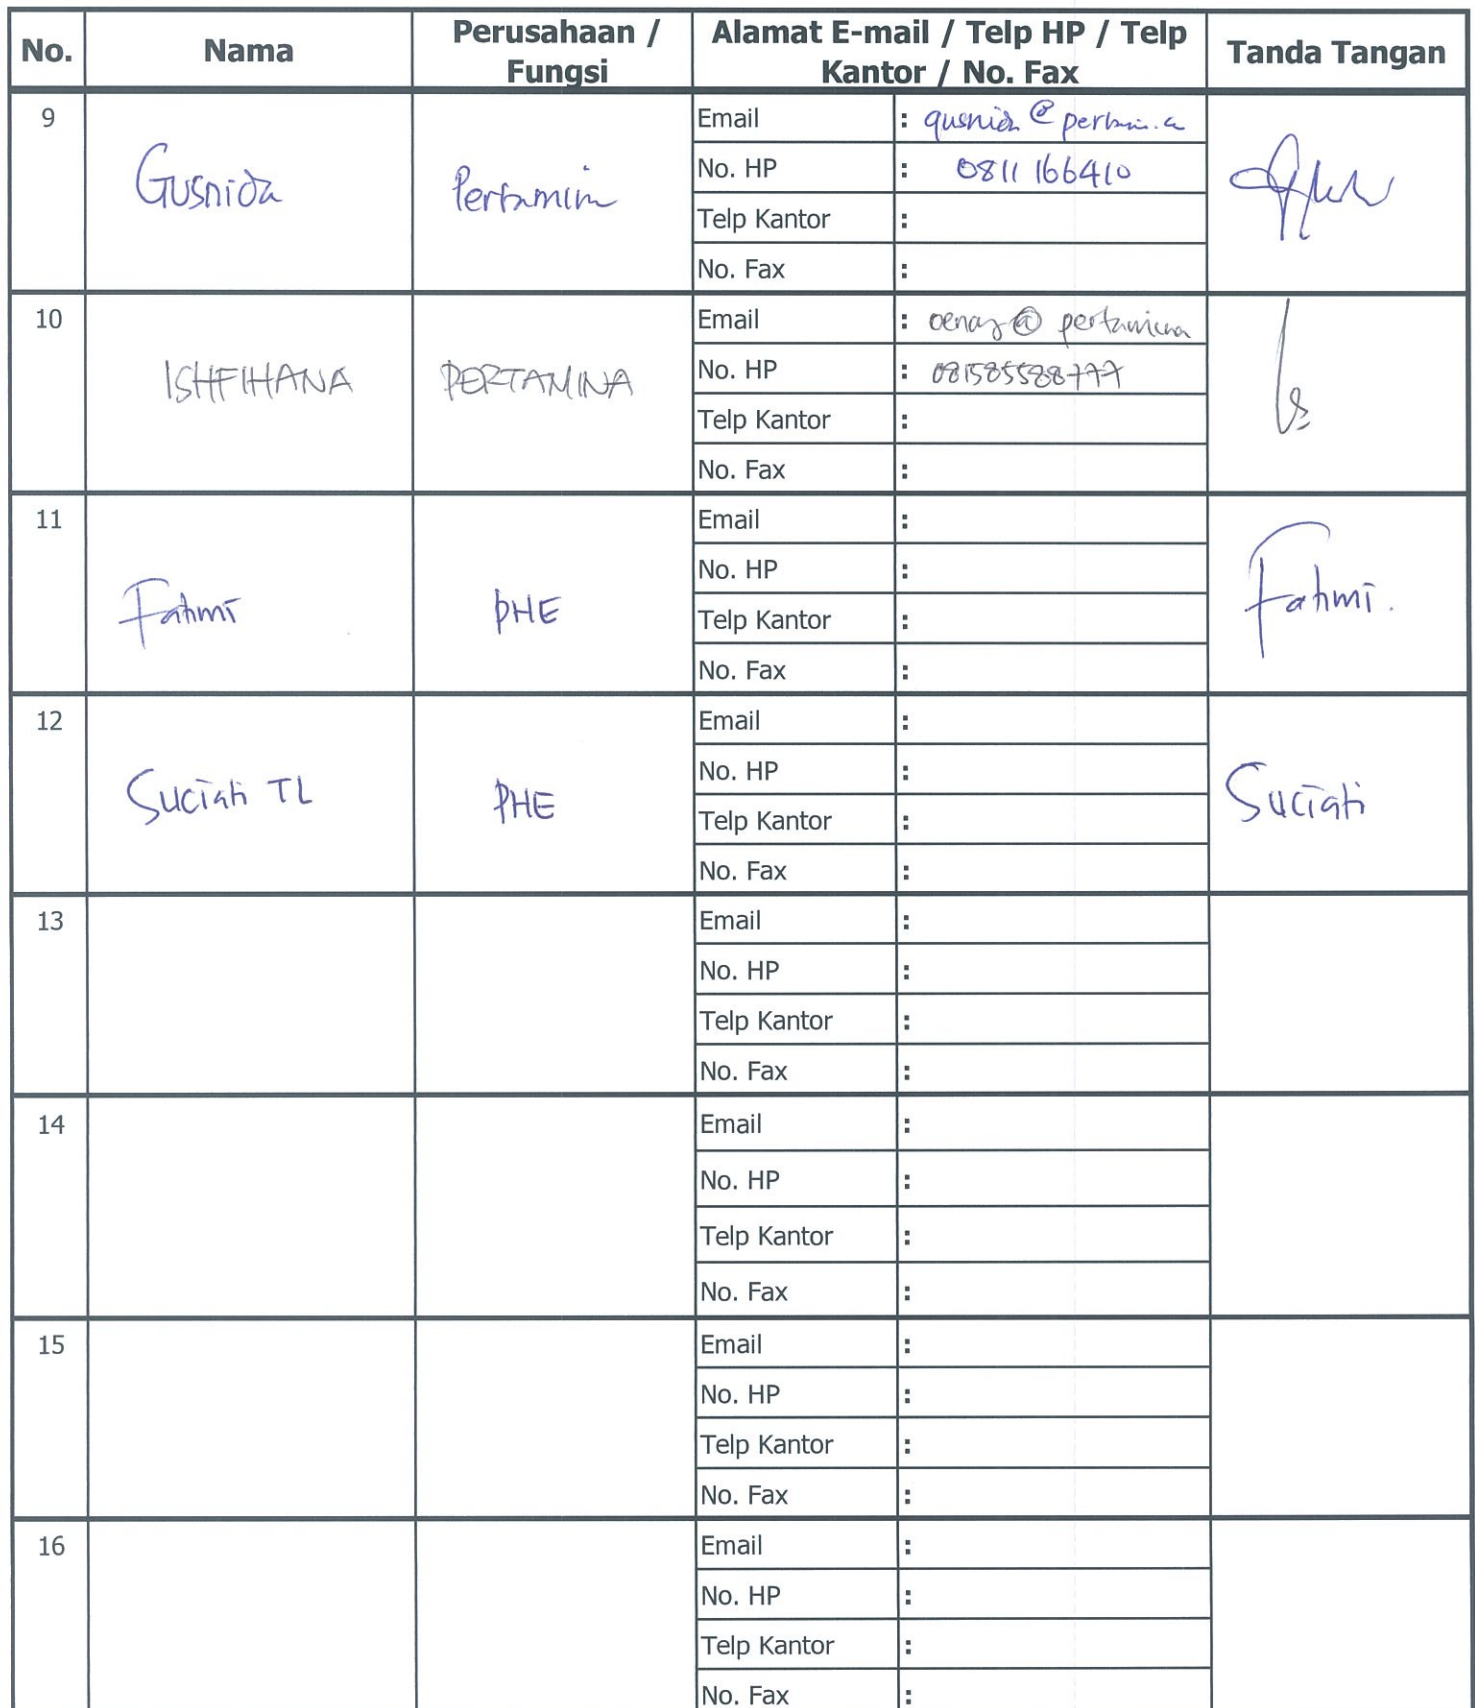 No. Nama Perusahaan / Fungsi Alamat E-mail / Telp HP / Telp Kantor / No. Fax Tanda Tangan
9 Gusnida Pertamin Email : gusnida @
No. HP : 0811 166410
Telp Kantor :
No. Fax :
10 ISHFIHANA PERTAMINA Email : @ pertamina
No. HP : 081585588777
Telp Kantor :
No. Fax :
11 Fahmi PHE Email : Fahmi.
No. HP :
Telp Kantor :
No. Fax :
12 Suciati TL PHE Email : Suciati
No. HP :
Telp Kantor :
No. Fax :
13 Email :
No. HP :
Telp Kantor :
No. Fax :
14 Email :
No. HP :
Telp Kantor :
No. Fax :
15 Email :
No. HP :
Telp Kantor :
No. Fax :
16 Email :
No. HP :
Telp Kantor :
No. Fax :